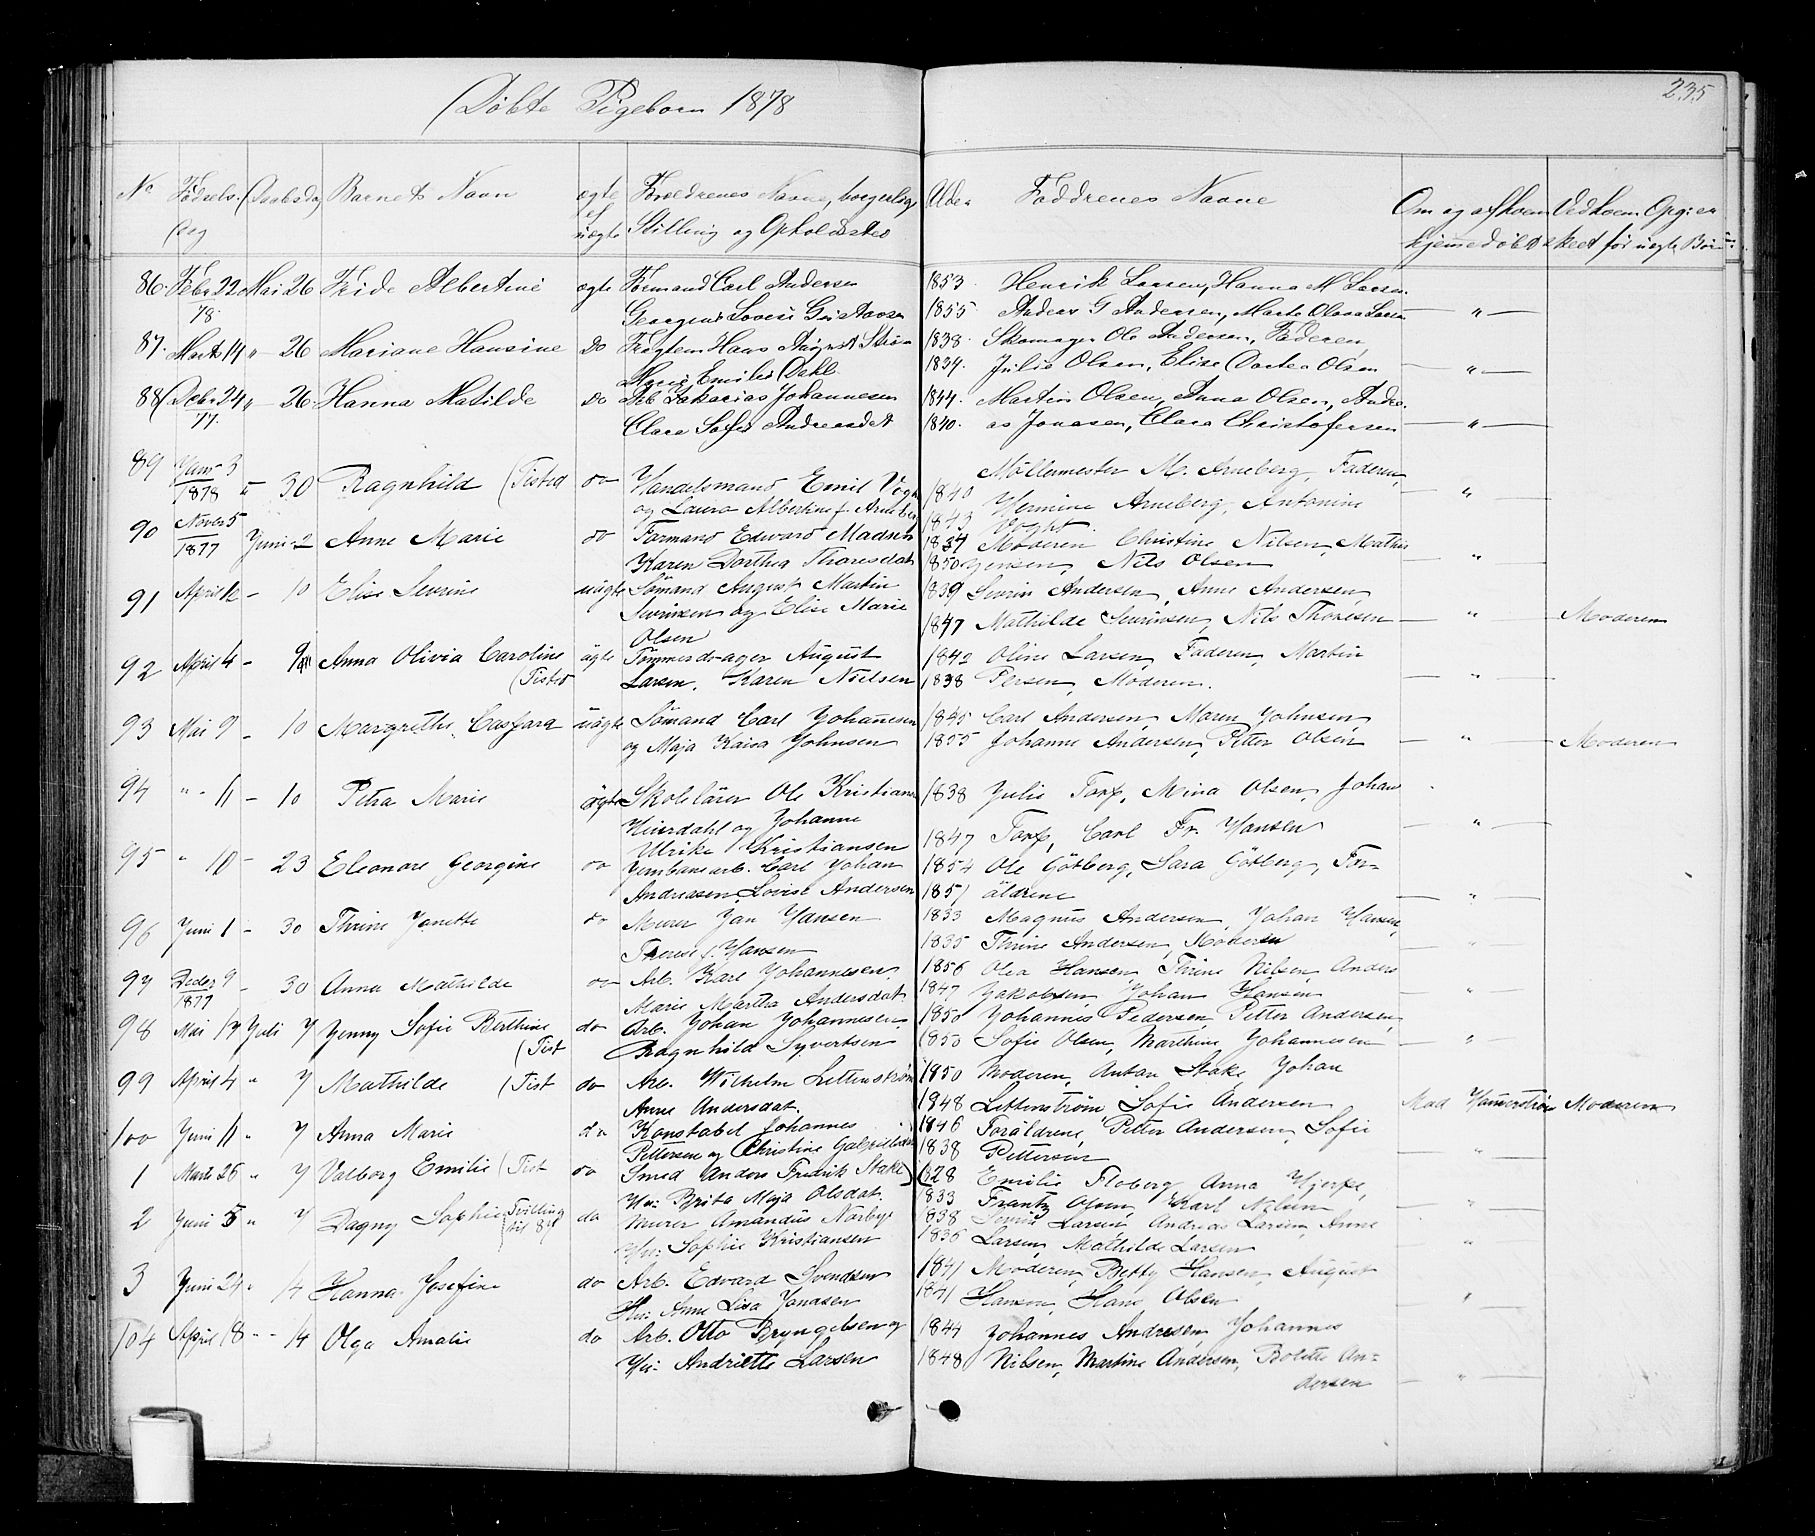 Døbte Pigebørn 1878
235
No Fødsels- Daabsdag Barnets Navn ægte Forældrenes Navne, borgerlig Alder Faddrenes Navne Om og af hvem Ved hvem Opg: er
Dag uægte Stilling og Opholdsted hjemmedøbt skeet for uægte Børn
86 Febr 22 Mai 26 Fride Albertine ægte Formand Carl Andersen 1853 Henrik Larsen, Hanna M Larsen
78. Georgine Lovise Gustavsen 1855 Anders G Andersen, Marte Olava Larsen — " —
87. Marts 14 " 26 Mariane Hansine do Hans August 1838. Skomager Ole Andersen, Faderen,
Marie Emilie Dahl 1834. Julie Olsen, Elise Dortea Olsen — " —
88 Debr 24 " 26 Hanna Matilde do Arb Sakarias Johannesen 1844. Martin Olsen, Anna Olsen, Andre-
77. Clara Sofie Andreasdat 1840. as Jonasen, Clara Christofersen — " —
89 Janr 3 Møllermester M. Arneberg, Faderen,
1878 " 30 Ragnhild (Tisted do Handelsmand Emil Vogt 1840 Hermine Arneberg, Antonine — " —
og Laura Albertine f. Arneberg 1843 Voght.
90 Novbr 5
1877 Juni 2 Anne Marie do Formand Edward Madsen 1837 Moderen Christine Nilsen, Mathis
Karen Dorthea Thoresdat 1850 Jensen, Nils Olsen — " —
91 April 12 - 10 Elise Severine uægte Sømand August Martin 1839 Severin Andersen, Anne Andersen,
Severinsen og Elise Marie 1847 Mathilde Severinsen, Nils Thoresen — " — Moderen
Olsen
92 April 4 - 9 Anna Olivia Caroline ægte Tømmerdrager August 1842 Oline Larsen, Faderen, Martin
(Tisted Larsen. Karen Nielsen 1838 Persen, Moderen. — " —
93 Mai 9 - 10 Margrethe Casfara uægte Sømand Carl Johannesen 1845 Carl Andersen, Maren Johnsen,
og Maja Kaisa Johnsen 1855 Johanne Andersen, Petter Olsen — " — Moderen
94 " - 11 - 10 Petra Marie ægte Skolelærer Ole Kristian 1838 Julie Torp, Mina Olsen, Johan
Heierdahl og Johanne 1847 Torp, Carl Fr. Hansen — " —
Ulrike Kristiansen
95 " 10 - 23 Eleonore Georgine do Jernbanearb. Carl Johan 1854 Ole Götberg, Sara Götberg, For-
Andreasen, Lovise Andersen 1851 äldrene — " —
96 Juni 1 - 30 Thrine Janette do Murer Jan Hansen 1833 Magnus Andersen, Johan Hansen,
Therese f. Hansen 1835 Thrine Andersen, Moderen — " —
97 Decbr 9
1877 - 30 Anna Mathilde do Arb. Karl Johannesen 1856 Olea Hansen, Thrine Nilsen, Anders
Marie Martha Andersdat. 1847 Jakobsen, Johan Hansen — " —
98 Mai 17 Juli 7 Jenny Sofie Berthine do Arb. Johan Johannesen, 1850 Johannes Pedersen, Petter Andersen,
(Tist Ragnhild Syvertsen 1853 Sofie Olsen, Marthine Johannesen — " —
99 April 4 " 7 Mathilde (Tist do Arb. Wilhelm Littenstrøm 1850 Moderen, Anton Stake, Johan
Anne Andersdat. 1848 Littenstrøm, Sofie Andersen Mad Moderen
100 Juni 11 " 7 Anna Marie do Konstabel Johannes 1846 Foräldrene, Petter Andersen, Sofie
Pettersen og Christine 1838 Pettersen — " —
1 Marts 26 " 7 Valborg Emilie (Tist do Smed Anders Fredrik Stake 1828 Emilie Floberg, Anna Hjerpe,
Hu: Brita Maja Olsdat. 1833 Frantz Olsen, Karl Nilsen — " —
2 Juni 5 " 7 Dagny Sophie (Tvilling do Murer Amandus Norbye 1838 Larsen, Andreas Larsen, Anne
Hu: Sophie Kristiansen 1835 Larsen, Mathilde Larsen "
3 Juni 24 " 14 Hanna Josefine do Arb. Edvard Svendsen 1841 Moderen, Betty Hansen, August
Hu: Anne Lisa Jonasen 1841 Hansen, Hans Olsen "
104 April 18 - - 14 Olga Amalie do Arb. Otto Bryngelsen og 1844 Johannes Andresen, Johannes
Hu: Andriette Larsen 1848 Nilsen, Martine Andersen, Bolette An-
dersen — " —